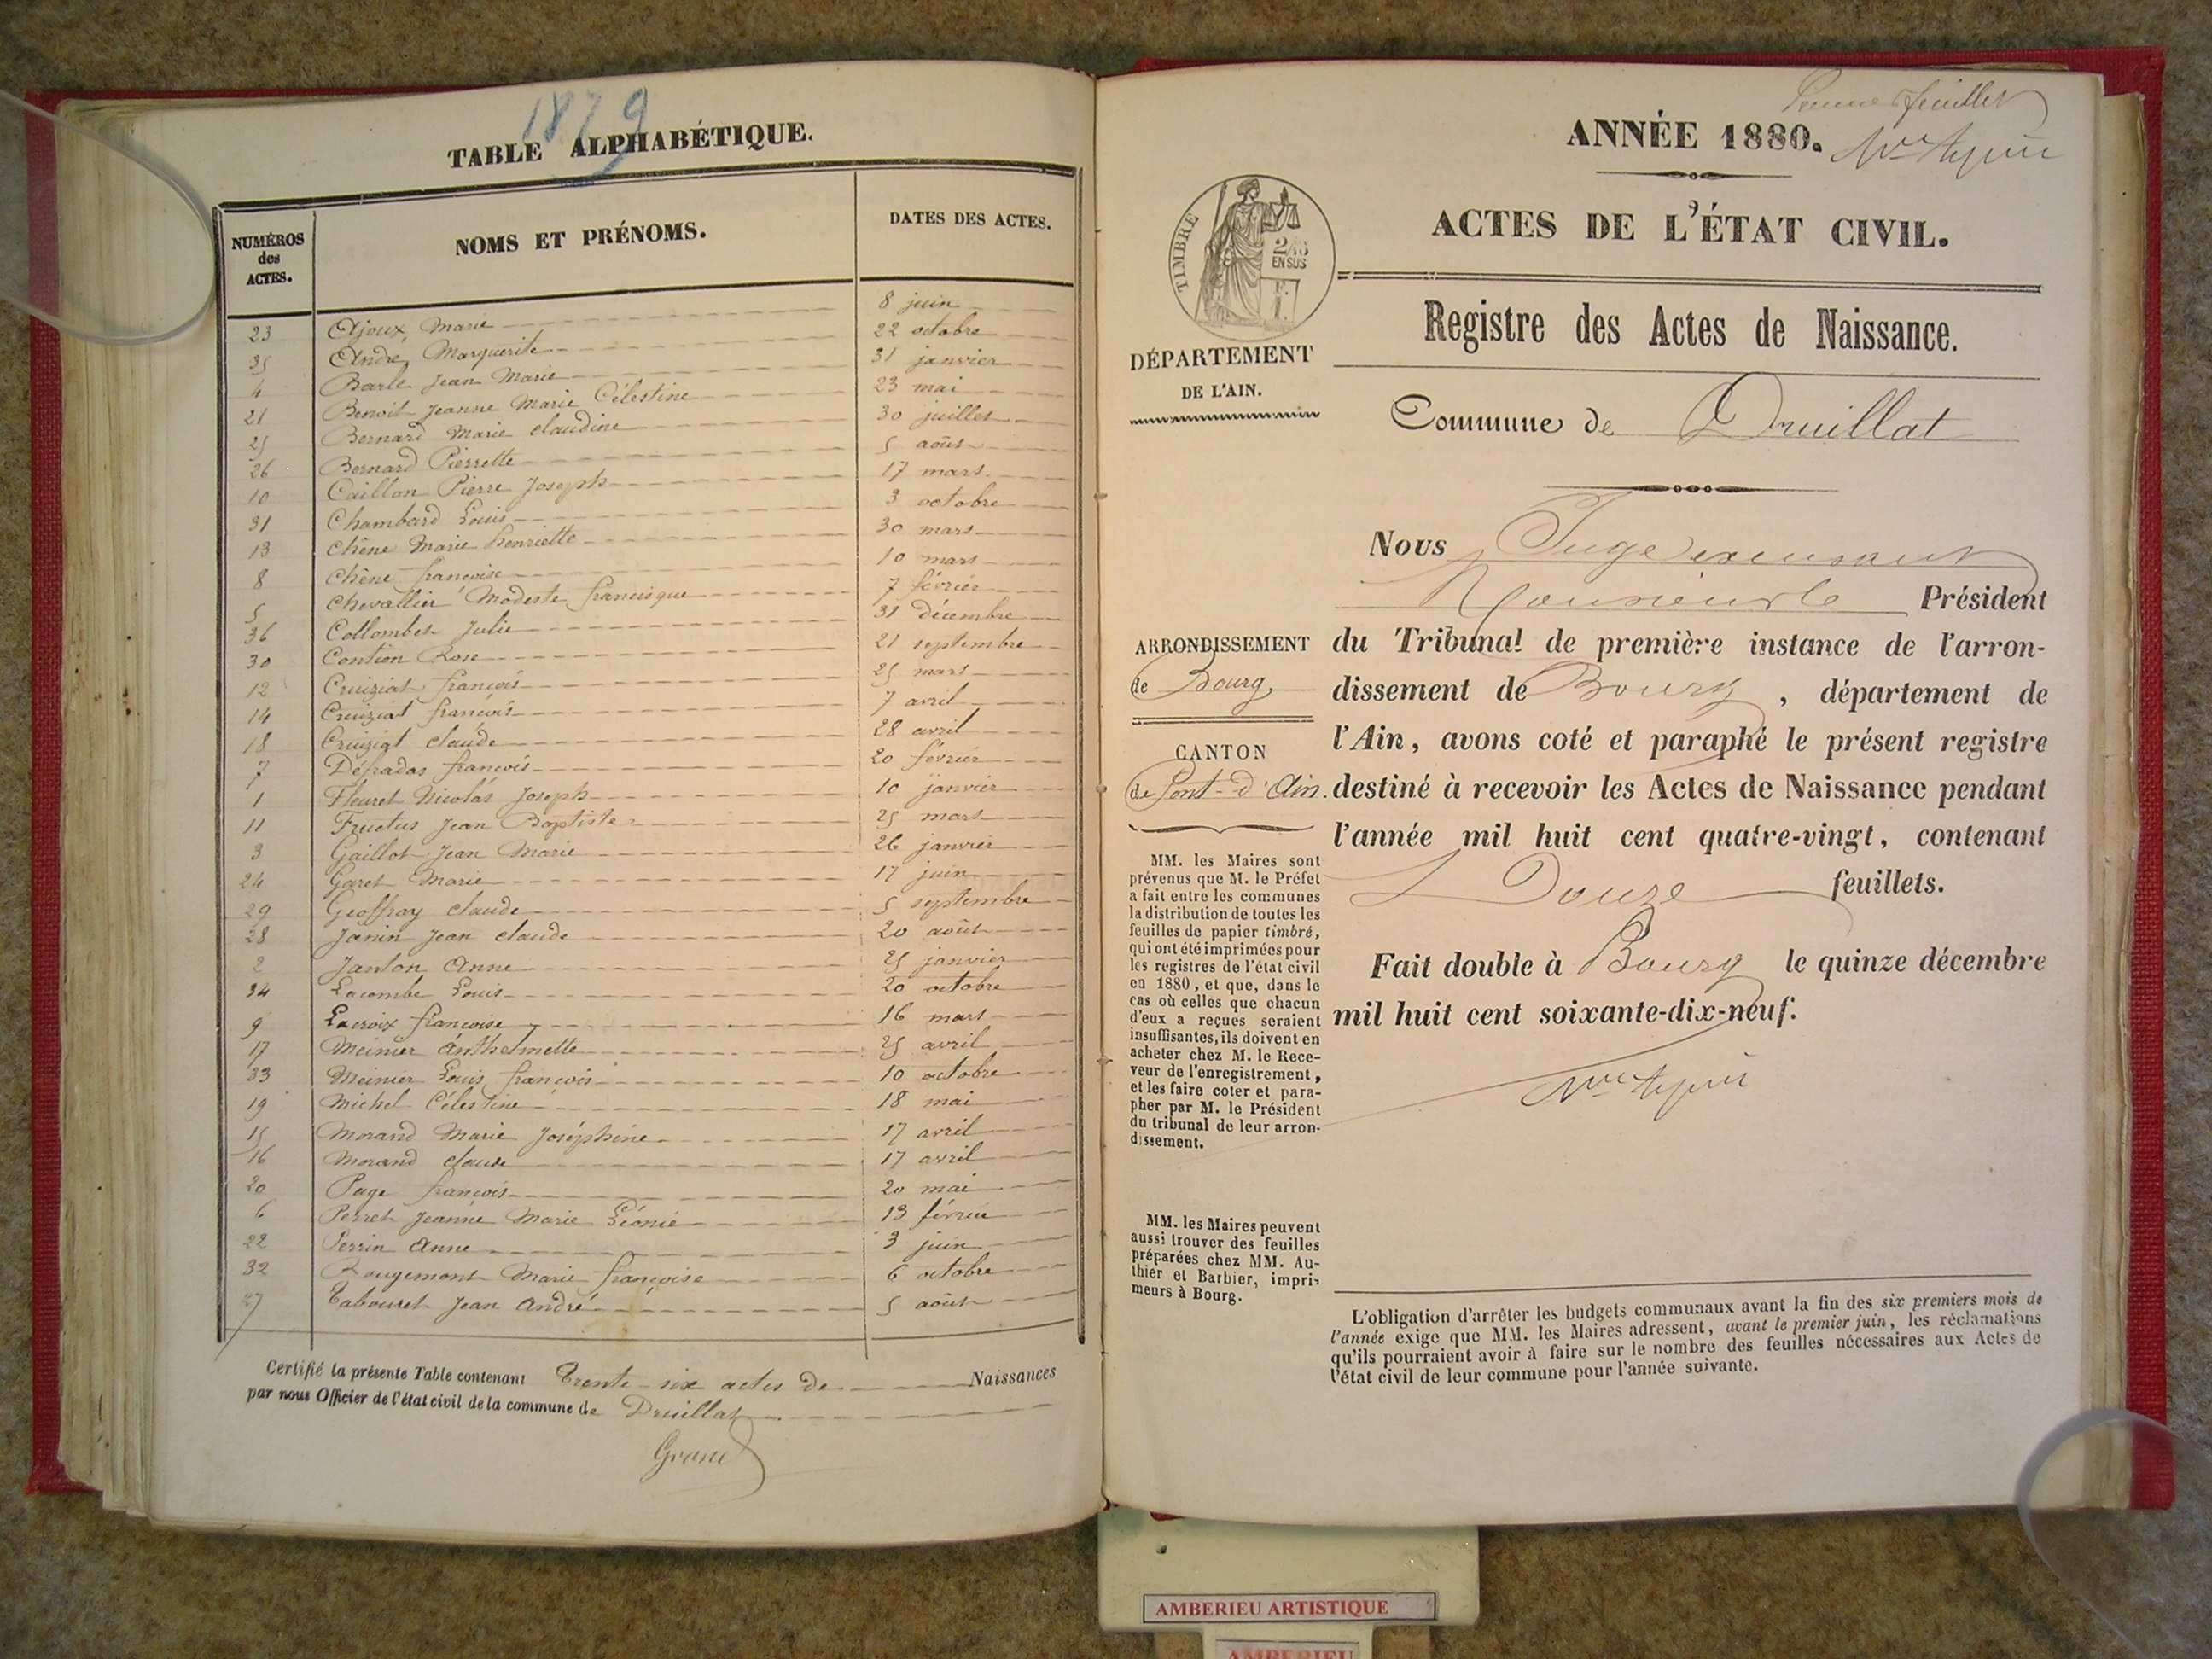 1879
TABLE ALPHABÉTIQUE.
NUMÉROS des ACTES. NOMS ET PRÉNOMS. DATES DES ACTES.
23 Ajoux Marie 8 juin
35 André Marguerite 22 octobre
4 Barle Jean Marie 31 janvier
21 Benoit Jeanne Marie Célestine 23 mai
25 Bernard Marie claudine 30 juillet
26 Bernard Pierrette 5 août
10 Caillon Pierre Joseph 17 mars
31 Chambard Louis 3 octobre
13 Chêne Marie henriette 30 mars
8 Chêne françoise 10 mars
5 Chevallier Modeste francisque 7 février
36 Collombet Julie 31 décembre
30 Contion Rose 21 septembre
12 Cruiziat françois 25 mars
14 Cruiziat françois 7 avril
18 Cruiziat claude 28 avril
7 Défradas françois 20 février
1 Fleuret Nicolas Joseph 10 janvier
11 Fructus Jean Baptiste 25 mars
3 Gaillot Jean Marie 26 janvier
24 Garet Marie 17 juin
29 Geoffray claude 5 septembre
28 Janin Jean claude 20 août
2 Janton Anne 25 janvier
34 Lacombe Louis 20 octobre
9 Lacroix françoise 16 mars
17 Meinier Anthelmette 25 avril
33 Meinier Louis françois 10 octobre
19 Michel Célestine 18 mai
15 Morand Marie Joséphine 17 avril
16 Morand claude 17 avril
20 Page françois 20 mai
6 Perret Jeanne Marie Léonie 13 février
22 Perrin Anne 3 juin
32 Rougemont Marie françoise 6 octobre
27 Tabouret Jean André 5 août
Certifié la présente Table contenant Trente-six actes de Naissances
par nous Officier de l'état civil de la commune de Druillat
Grand
feuillet
ANNÉE 1880.
ACTES DE L'ÉTAT CIVIL.
TIMBRE
EN SUS
Registre des Actes de Naissance.
DÉPARTEMENT
DE L'AIN.
Commune de Druillat
Nous Juge
Monsieur le Président
ARRONDISSEMENT
de Bourg
du Tribunal de première instance de l'arron-
dissement de Bourg, département de
l'Ain, avons coté et paraphé le présent registre
CANTON
de Pont-d'Ain.
destiné à recevoir les Actes de Naissance pendant
l'année mil huit cent quatre-vingt, contenant
Douze feuillets.
Fait double à Bourg le quinze décembre
mil huit cent soixante-dix-neuf.
MM. les Maires sont
prévenus que M. le Préfet
a fait entre les communes
la distribution de toutes les
feuilles de papier timbré,
qui ont été imprimées pour
les registres de l'état civil
en 1880, et que, dans le
cas où celles que chacun
d'eux a reçues seraient
insuffisantes, ils doivent en
acheter chez M. le Rece-
veur de l'enregistrement,
et les faire coter et para-
pher par M. le Président
du tribunal de leur arron-
dissement.
MM. les Maires peuvent
aussi trouver des feuilles
préparées chez MM. Au-
thier et Barbier, impri-
meurs à Bourg.
L'obligation d'arrêter les budgets communaux avant la fin des six premiers mois de
l'année exige que MM. les Maires adressent, avant le premier juin, les réclamations
qu'ils pourraient avoir à faire sur le nombre des feuilles nécessaires aux Actes de
l'état civil de leur commune pour l'année suivante.
AMBERIEU ARTISTIQUE
AMBERIEU